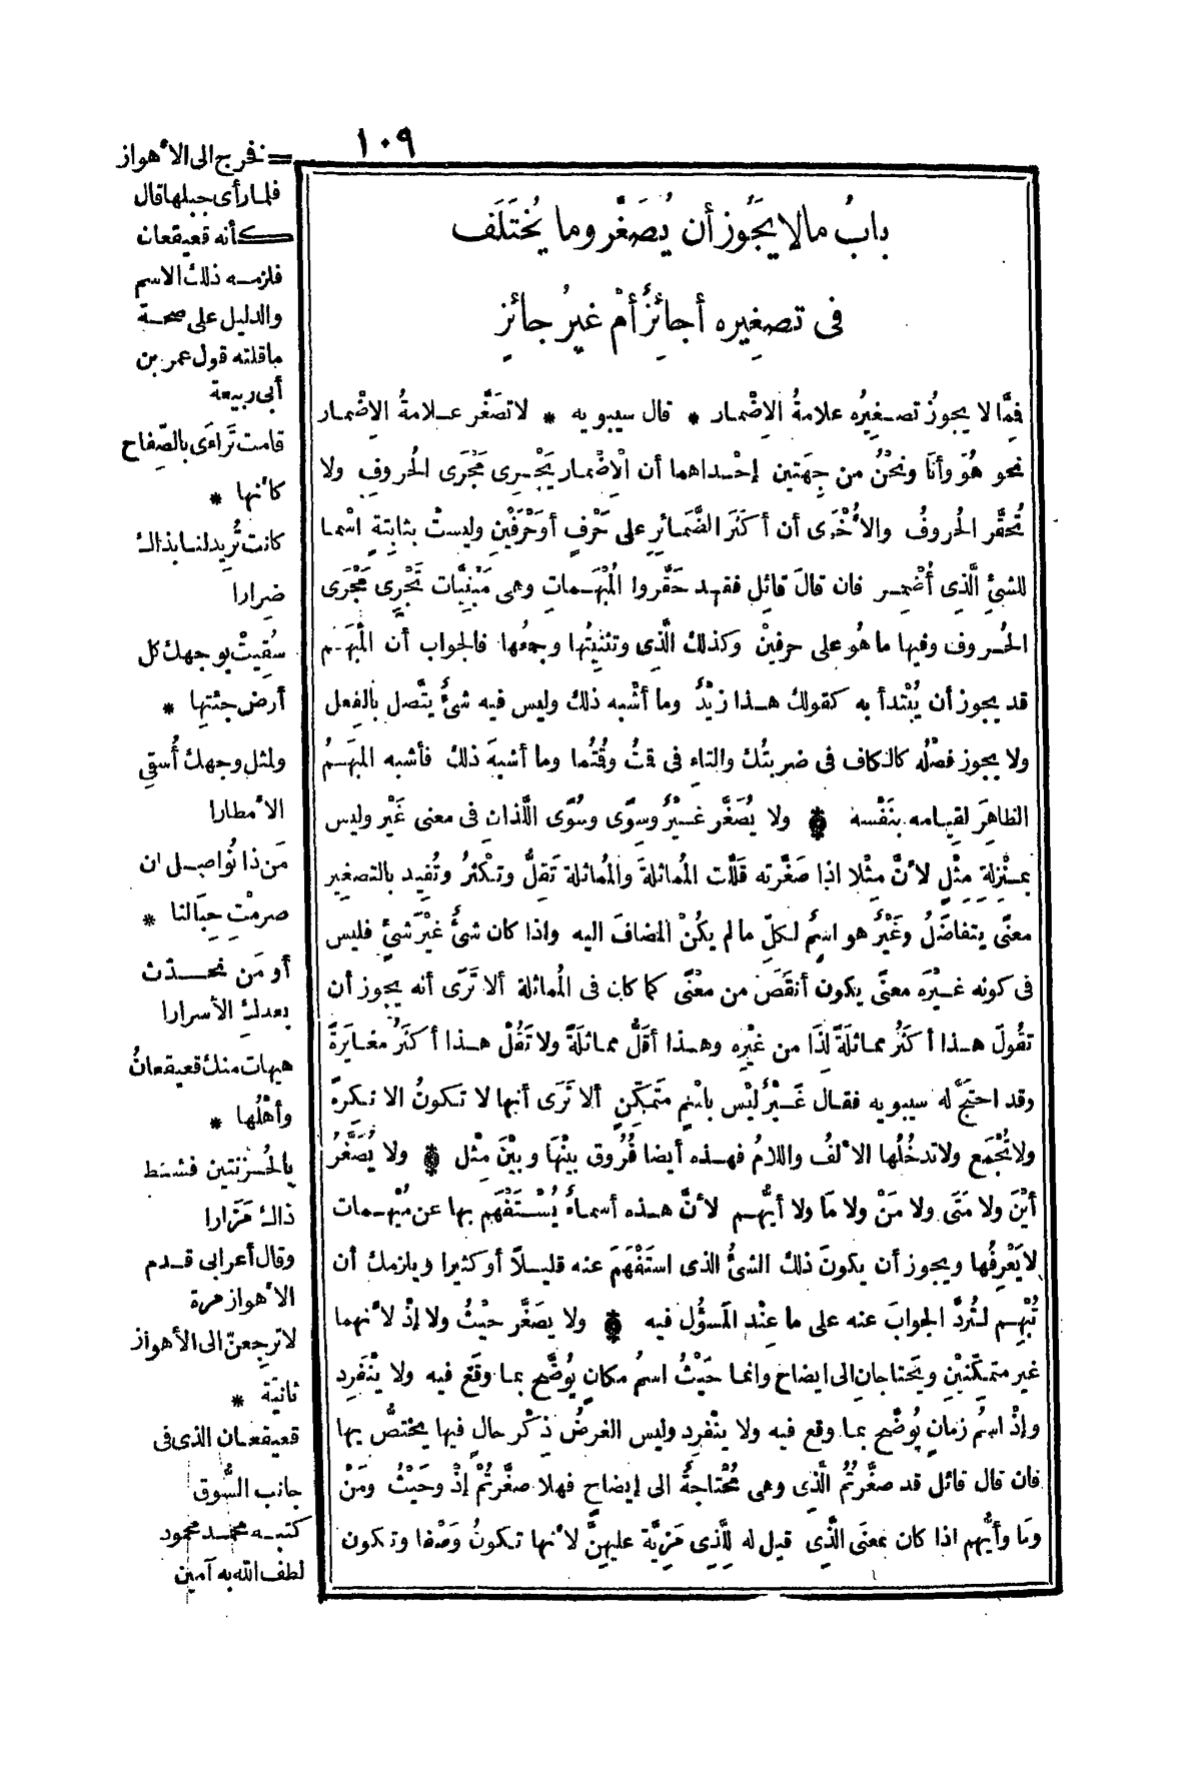 ١٠٩
بابُ مالا يجَوُز أن يُصَغَّر وما يُخْتَلَف
فى تصغِيره أجائزُ أمْ غيرُ جائزٍ
فمَّا لا يجوزُ تصغيرُه علامةُ الاِضْمار * قال سيبويه * لاتصَغَّر علامةُ الاِضْمار
نحو هُوَ وأنَا ونحْنُ من جِهَتين إحْداهما أن الْاِضْمار يَجْرِى مَجْرَى الحُروفِ ولا
تُحقَّر الحُروفُ والاُخْرَى أن أكثَرَ الضَّمَائرِ على حَرْفٍ أوحَرْفَيْنِ وليستْ بثابتةٍ اسْما
للشئِ الَّذِى أُضْمِر فان قالَ قائلِ فقد حَقَّروا المُبْهَماتِ وهى مَبْنِيَّات تَجْرِى مَجْرَى
الحُروف وفيها ما هُو على حرفينْ وكذلك الَّذِى وتثنيتُها وجمعُها فالجواب أن المُبْهَم
قد يجوز أن يُبْتدأ به كقولك هذا زيْدُ وما أشْبه ذلك وليس فيه شئُ يتَّصل بالفِعل
ولا يجوز فصْلُه كالكاف فى ضربتُك والتاءِ فى قمْتُ وقُمْتُما وما أشبهَ ذلك فأشبه المبهَمُ
الظاهِرَ لقيامه بنَفْسه * ولا يُصَغَّر غَيْرُ وسِوًى وسُوًى اللَّذانِ فى معنى غَيْر وليس
بمنْزِلة مِثْلٍ لاَنَّ مِثْلا اذا صَغَّرته قَلَّلت المُماثلةَ والمُماثلة تَقِلُّ وتكْثرُ وتُفِيد بالتصغير
معنًى يتفاضَلُ وغَيْرُ هو اسمُ لكلِّ مالم يكُنْ المضافَ اليه واذا كان شئُ غيْرَ شئٍ فليس
فى كونه غيْرَه معنًى يكون أنقَصَ من معْنًى كما كان فى المُماثلة ألا تَرَى أنه يجوز أن
تقُولَ هذا أكثَرُ مماثلَةً لِذَا من غيْرِه وهذا أقَلُّ مماثلَةً ولا تَقُلْ هذا أكثَرُ مغايَرةً
وقد احتجَّ له سيبويه فقال غَيْرُ ليْس باسْمٍ متَمَكِّنٍ ألا تَرَى أنها لا تكونُ الا نكِرةً
ولا تُجْمَع ولاتدخُلُها الالفُ واللامُ فهذه أيضا فُرُوق بيْنَها وبيْنَ مثْل * ولا يُصَغَّرُ
أيْنَ ولا مَتَى ولا مَنْ ولا مَا ولا أيُّهم لاَنَّ هذه أسماءُ يُسْتَفْهَم بها عن مُبْهمات
لايَعْرِفُها ويجوز أن يكونَ ذلك الشئُ الذى استَفْهَمَ عنه قليلاً أوكثيرا ويلزمك أن
تُبْهِم لتُردَّ الجوابَ عنه على ما عِنْد المَسؤُل فيه * ولا يصَغَّر حيْثُ ولا إذْ لاَنهما
غير متمكِّنيْنِ ويَحْتاجانِ الى ايضاح وانما حَيْثُ اسمُ مكانٍ يُوضَّح بما وقَع فيه ولا ينْفَرِد
وإذْ اسمُ زمانٍ يُوضَّح بما وقع فيه ولا ينْفرِد وليس الغرضُ ذِكْر حالٍ فيها يختصُّ بها
فان قال قائل قد صغَّرتُمُ الَّذِى وهى مُحْتاجةُ الى إيضاحٍ فهلا صغَّرتُمْ إذْ وحَيْثُ ومَنْ
ومَا وأيُّهم اذا كان بمعنَى الَّذِى قيل له لِلَّذِى مَزِيَّة عليهِنَّ لاَنها تكونُ وَصْفا وتكون
= فخرج الى الاَهواز
فلما رأى جبلها قال
كأنه قعيقعان
فلزمه ذلك الاسم
والدليل على صحة
ماقلته قول عمر بن
أبى ربيعة
قامت تَراءَى بالصِّفاح
كاَنها *
كانت تُريد لنا بذاك
ضِرارا
سُقِيتْ بوجهك كل
أرض جئتِها *
ولمثل وجهك أُسقِى
الاَمطارا
مَن ذا نُواصل ان
صرمْتِ حِبَالنا *
أو مَن نحدّث
بعدكِ الأسرارا
هيهات منك قعيقعانُ
وأهْلُها *
بالحُزنتين فشط
ذاك مَزارا
وقال أعرابى قدم
الاَهواز مرة
لاترجعنّ الى الأهواز
ثانيَة *
قعيقعان الذى فى
جانب السُّوق
كتبه محمد محمود
لطف الله به آمين